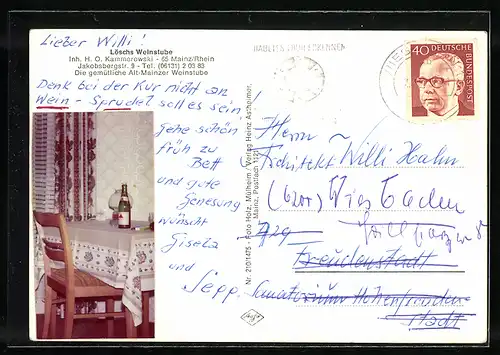 Lieber Willi!
Löschs Weinstube
Inh. H. O. Kammerowski - 65 Mainz/Rhein
Jakobsbergstr. 9 - Tel. (06131) 2 03 83
Die gemütliche Alt-Mainzer Weinstube
Denk bei der Kur nicht an
Wein - Sprudel soll es sein!
Gehe schön
früh zu
Bett
und gute
Genesung
wünscht
Gisela
und
Sepp.
Nr. 210/1475 - Foto Holz, Mülheim / Verlag Heinz Ashelmor,
Mainz, Postfach 1121
40 DEUTSCHE
BUNDESPOST
Herrn
Architekt Willi Hahn
(6201) Wiesbaden
729
Freudenstadt
Sanatorium Hohenfreuden-
stadt